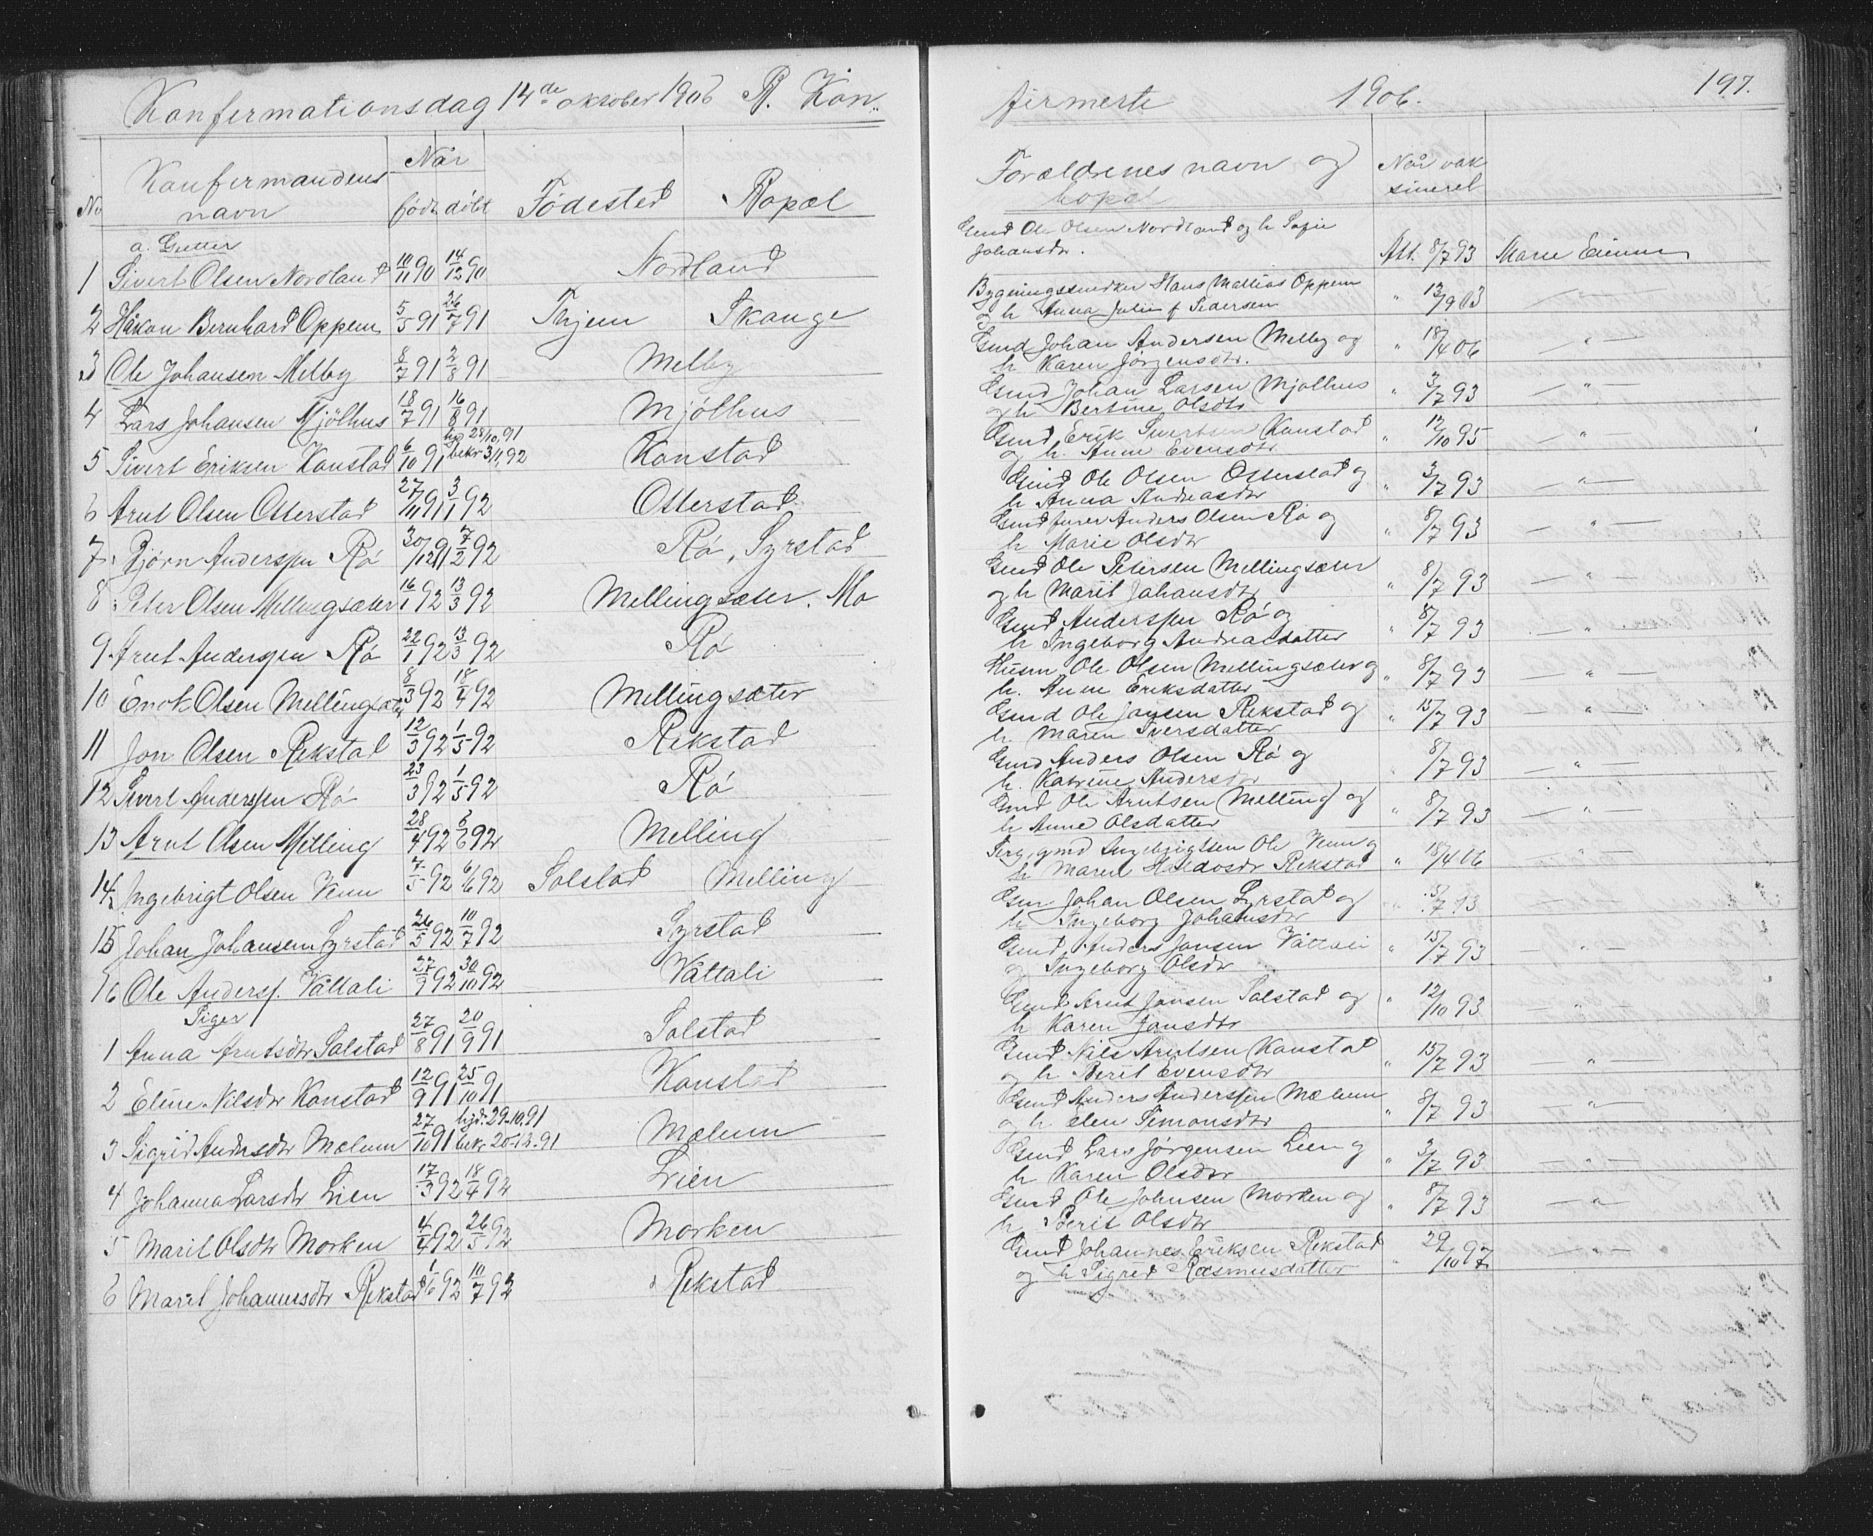 Konfermationsdag 14de oktober 1906 B. Kon-
No Konfermandens navn Når født døbt Fødested Bopæl
a. Gutter
1 Sivert Olsen Nordland 10/11 90 14/12 90 Nordland
2 Håkon Bernhard Oppem 5/5 91 26/7 91 Thjem Skauge
3 Ole Johansen Melby 8/7 91 2/8 91 Melby
4 Lars Johansen Mjölhus 18/7 91 16/8 91 Mjölhus
5 Sivert Eriksen Konstad 6/10 91 28/10.91 bekr 3/1,92 Konstad
6 Arnt Olsen Otterstad 27/11 91 3/1 92 Otterstad
7 Bjørn Anderssen Rö 30/12 91 7/2 92 Rö, Syrstad
8 Peter Olsen Mellingsæter 16/1 92 13/3 92 Mellingsæter. Mo
9 Arnt Anderssen Rö 22/1 92 13/3 92 Rö
10 Enok Olsen Mellingsæter 8/3 92 18/4 92 Mellingsæter
11 Jon Olsen Rikstad 12/3 92 1/5 92 Rikstad
12 Sivert Anderssen Rö 23/3 92 1/5 92 Rö
13 Arnt Olsen Melling 28/4 92 6/6 92 Melling
14 Ingebrigt Olsen Venn 7/5 92 6/6 92 Solstad Melling
15 Johan Johansen Syrstad 26/5 92 10/7 92 Syrstad
16 Ole Anderss. Våttali 27/9 92 30/10 92 Våttali
Piger
1 Anna Arntsdtr Solstad 27/8 91 20/9 91 Solstad
2 Eline Nilsdtr Konstad 12/9 91 25/10 91 Konstad
3 Sigrid Andersdtr Mælum 27/10 91 hjd. 29.10.91 bekr 20.12.91 Mælum
4 Johanna Larsdtr Lien 17/3 92 18/4 92 Lien
5 Marit Olsdtr Morken 4/4 92 26/5 92 Morken
6 Marit Johannesdtr Rikstad 1/6 92 10/7 92 Rikstad
firmerte 1906. 197.
Forældrenes navn og bopæl Når vaksineret
Gmd Ole Olsen Nordland og h Sofie
Johansdtr. Att. 8/7 93 Marie Eeinum
Bygningssnedker Hans Mathias Oppem
og h Anna Julie f Pedersen " 12/9 03 — " —
Gmd Johan Andersen Melby og
h Karen Jørgensdtr. " 18/4 06 — " —
Gmd Johan Larsen Mjölhus
og h Bertine Olsdtr " 3/7 93 — " —
Gmd Erik Sivertsen Konstad
og h. Anne Evensdtr " 12/10 95 "
Gmd Ole Olsen Otterstad og
h Anna Andreasdtr " 3/7 93 — " —
Gmd Anders Olsen Rö og
h Marie Olsdtr " 8/7 93 — " —
Gmd Ole Petersen Mellingsæter
og h Marit Johansdtr " 8/7 93 — " —
Gmd Anderssen Rö og
h Ingeborg Andreasdatter " 8/7 93 — " —
Husm Ole Olsen Mellingsæter og
h. Anne Eriksdatter " 8/7 93 — " —
Gmd Ole Jonsen Rikstad og
h. Maren Iversdatter " 15/7 93 — " —
Gmd Anders Olsen Rö og
h. Katrine Andersdtr " 8/7 93 — " —
Gmd Ole Arntsen Melling og
h Anne Olsdatter " 8/7 93 — " —
Serg. gmd Ingebrigtsen Ole Venn og
h Marit Rikstad " 18/4 06 — " —
Gm Johan Olsen Syrstad og
h Ingeborg Johansdtr 3/7 93
Gmd Anders Jonsen Våttali
og Ingeborg Olsdtr " 15/7 93 — " —
Gmd Arnt Jonsen Solstad og
h Karen Jonsdtr " 12/10 93 — " —
Gmd Nils Arntsen Konstad
og h Berit Evensdtr " 15/7 93 — " —
Gmd Anders Anderssen Mælum
og h Elen Simonsdtr " 8/7 93 — " —
Gmd Lars Jørgensen Lien og
h Karen Olsdtr " 3/7 93 — " —
Gmd Ole Johnsen Morken og
h Berit Olsdtr " 8/7 93 — " —
Gmd Johannes Eriksen Rikstad
og h Sigrid Rasmusdatter " 29/10 97 — " —